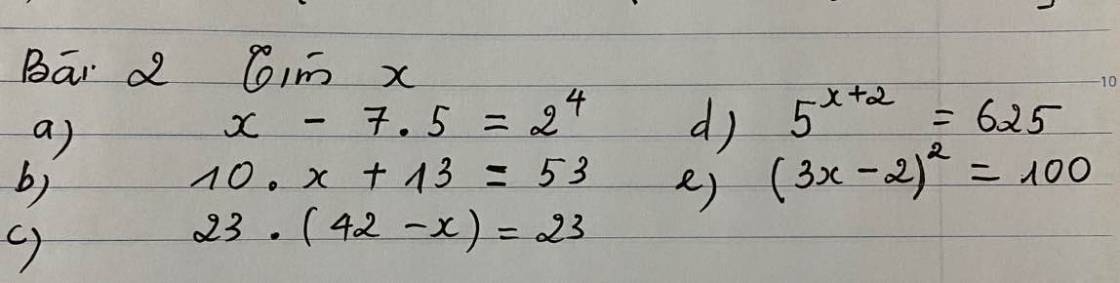 Bài 2 Tìm x
a) x - 7.5 = 2⁴ d) 5ˣ⁺² = 625
b) 10.x + 13 = 53 e) (3x-2)² = 100
c) 23.(42-x) = 23
10